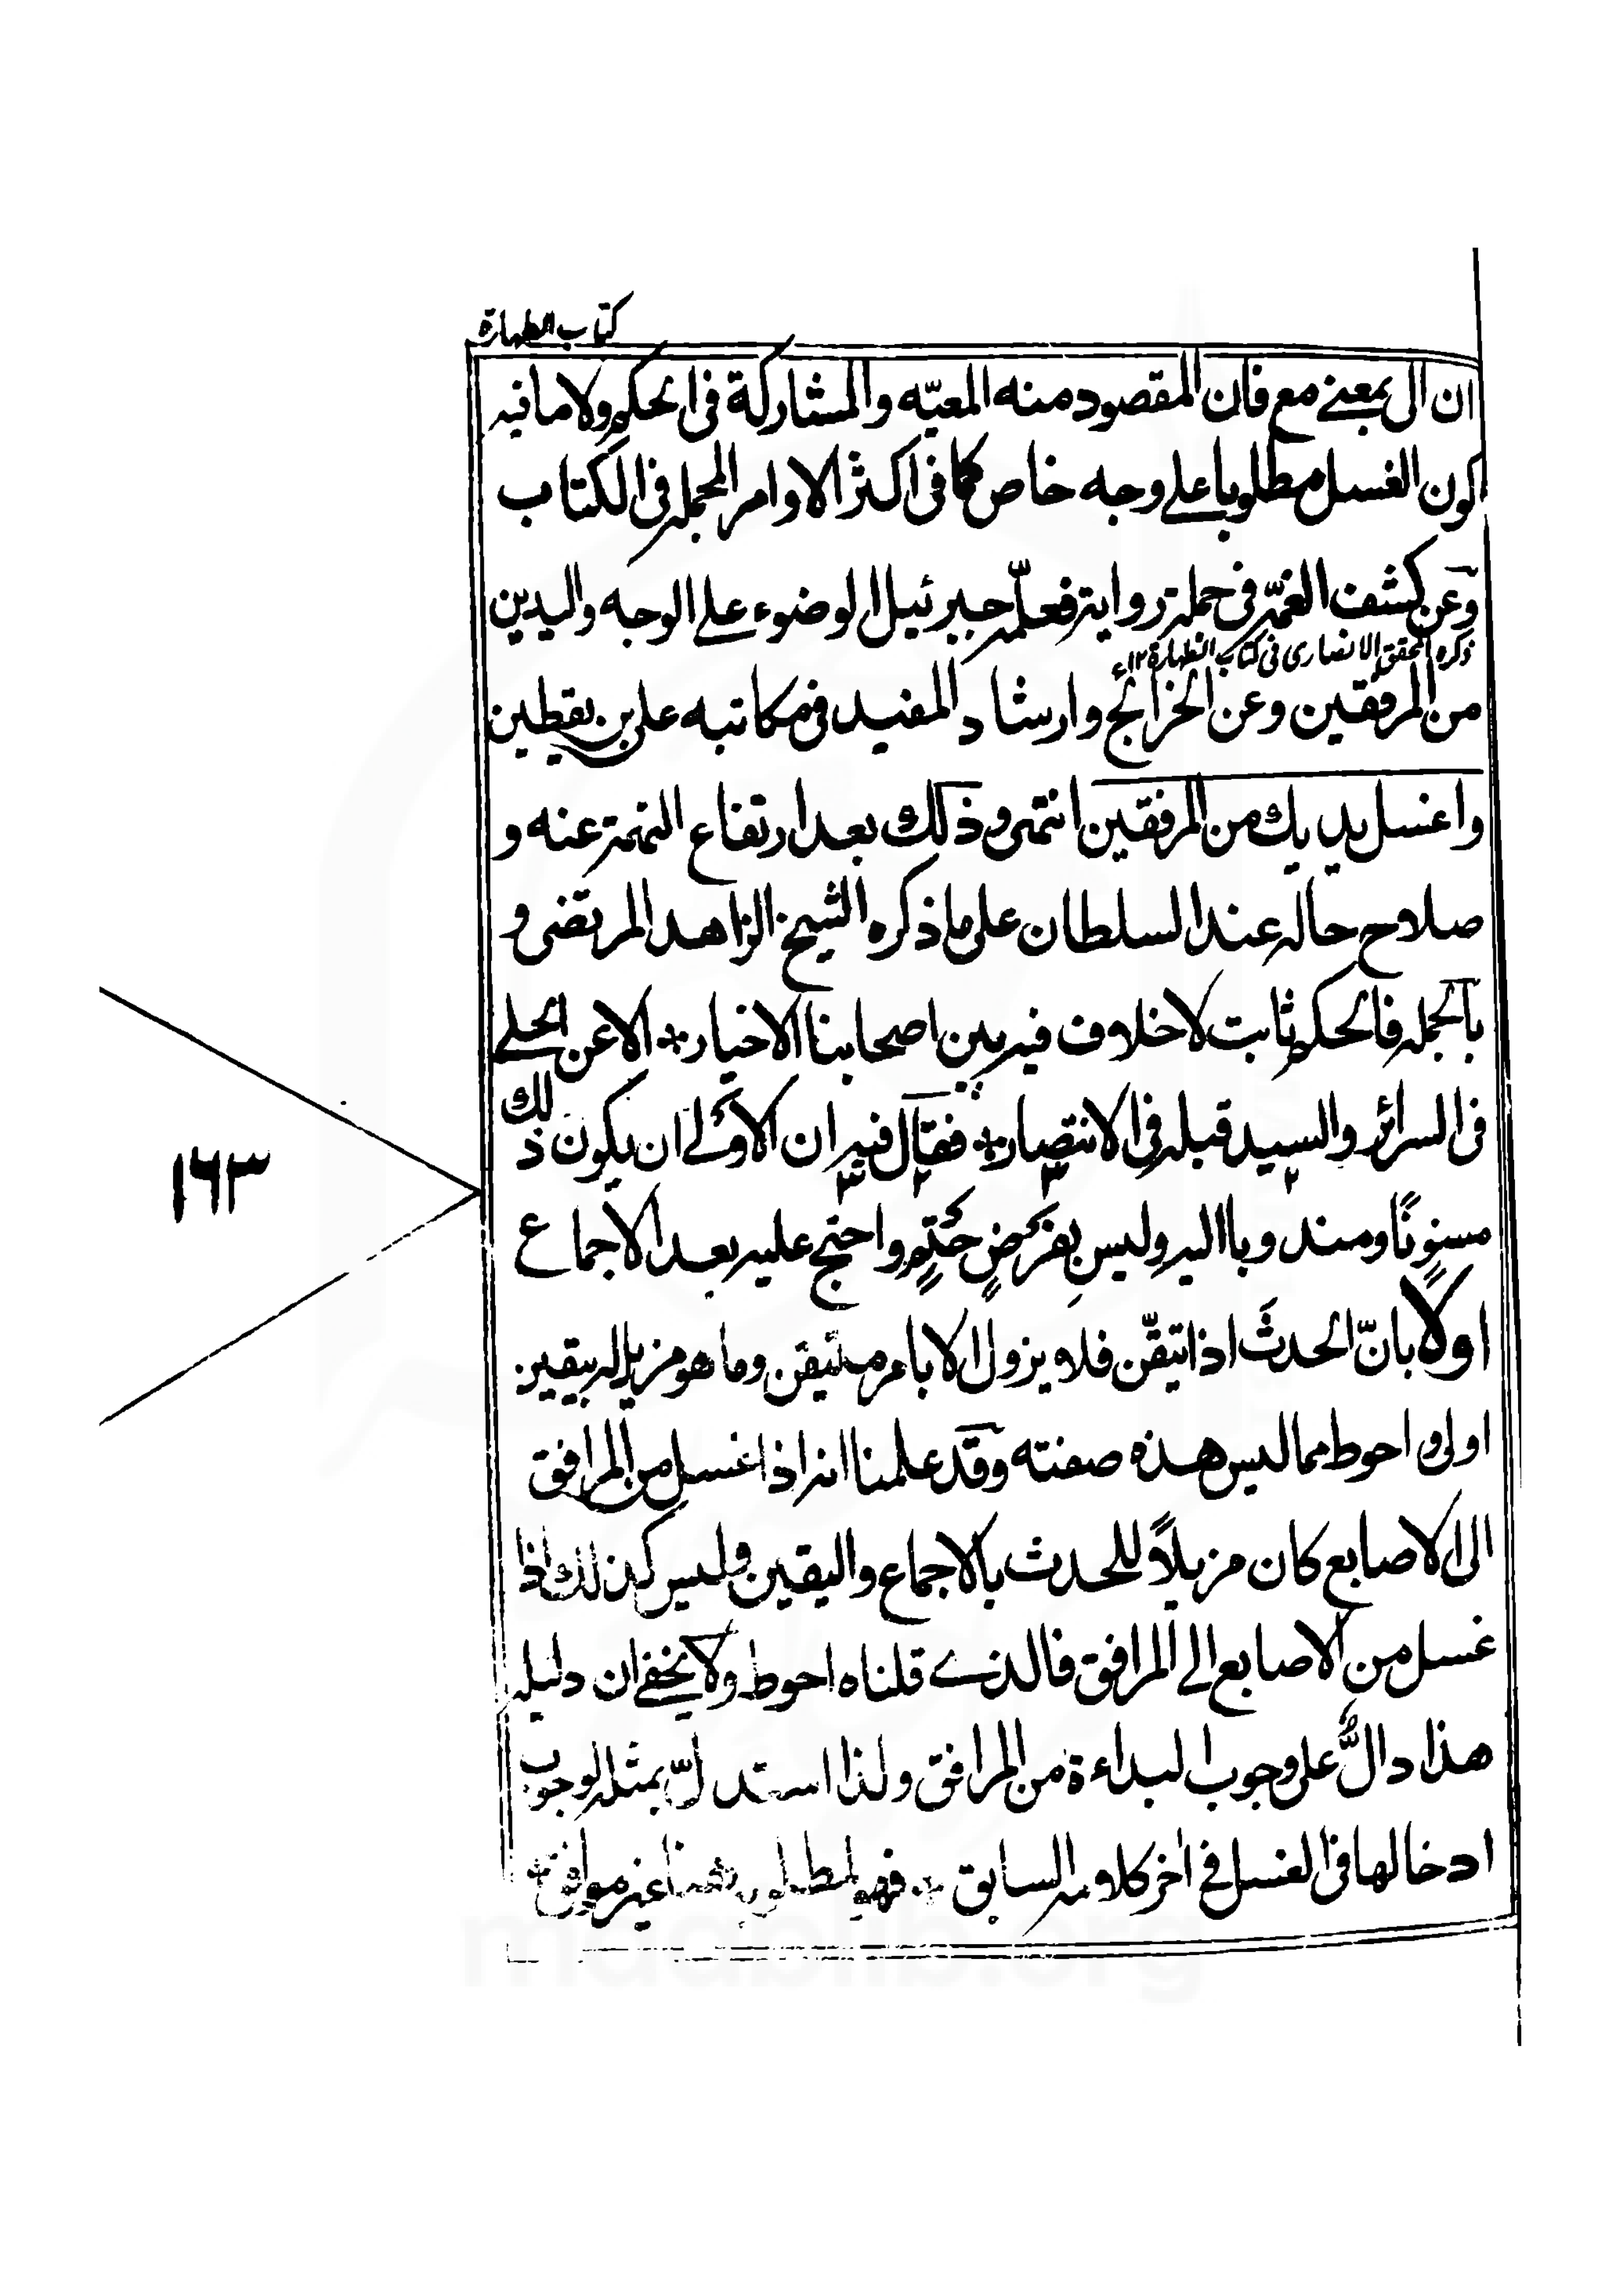 كتاب الطهارة
ان الى بمعنے مع فان المقصود منه المعيّه والمشاركة فى الحكم ولا ما فيه
كون الغسل مطلوبا علے وجه خاص كما فى اكثر الاوامر المجمله فى الكتاب
وعن كشف الغمّه فى جملة رواية فعلّمه جبرئيل الوضوء علے الوجه واليدين
ذكره المحقق الانصارى فى كتاب الطهارة ١٢
من المرفقين وعن الخرائج وارشاد المفيد فى مكاتبه على بن يقطين
واغسل يديك من المرفقين انتهى وذلك بعد ارتفاع التهمة عنه و
صلاح حاله عند السلطان على ما ذكره الشيخ الزاهد المرتضى و
بالجمله فالحكم ثابت لا خلاف فيه بين اصحابنا الاخيار الا عن الحلے
فى السرائر والسيد قبله فى الانتصار فقال فيه ان الاولے ان يكون ذلك
مسنونًا ومندوبا اليه وليس بفرضٍ حتمٍ واحتج عليه بعد الاجماع
اولًا بانّ الحدث اذا تيقّن فلا يزول الا بامر متيقن وما هو مزيل له بيقين
اولى واحوط مما ليس هذه صفته وقد علمنا انه اذا غسل من المرافق
الى الاصابع كان مزيلًا للحدث بالاجماع واليقين وليس كذلك اذا
١٦٣
غسل من الاصابع الى المرافق فالذے قلناه احوط ولا يخفے ان دليله
هذا دالٌّ على وجوب البداءة من المرافق ولذا استدلّ بمثله لوجوب
ادخالها فى الغسل فى اخر كلامه السابق فهو لمطلوبه هنا غير موافق